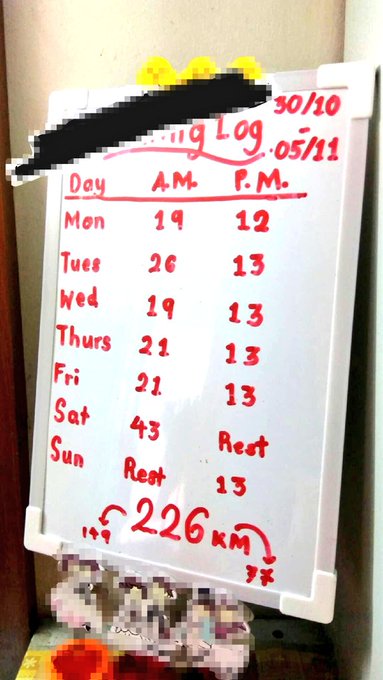 30/10
Log
-
05/11
Day A.M. P.M.
Mon 19 12
Tues 26 13
Wed 19 13
Thurs 21 13
Fri 21 13
Sat 43 Rest
Sun Rest 13
226 KM
149
77